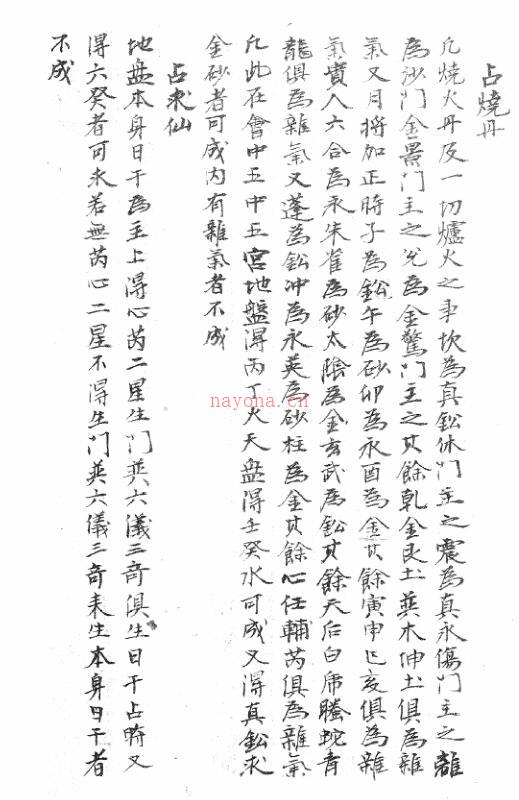 占燒丹
凡燒火丹及一切爐火之事坎為真鈆休門主之震為真永傷門主之離
為沙門金景門主之兊為金驚門主之其餘乾金艮土巽木伸土俱為雜
氣又月將加正時子為鈆午為砂卯為永酉為金其餘寅申巳亥俱為雜
氣貴人六合為永朱雀為砂太陰為金玄武為鈆其餘天后白虎螣蛇青
龍俱為雜氣又蓬為鈆冲為永英為砂柱為金其餘心任輔芮俱為雜氣
凡此在會中五中五宮地盤得丙丁火天盤得壬癸水可成又得真鈆永
金砂者可成内有雜氣者不成
占求仙
地盤本身日干為主上得心芮二星生門與六儀三奇俱生日干占時又
得六癸者可求若無芮心二星不得生門與六儀三奇来生本身日干者
不成
nayona.cn